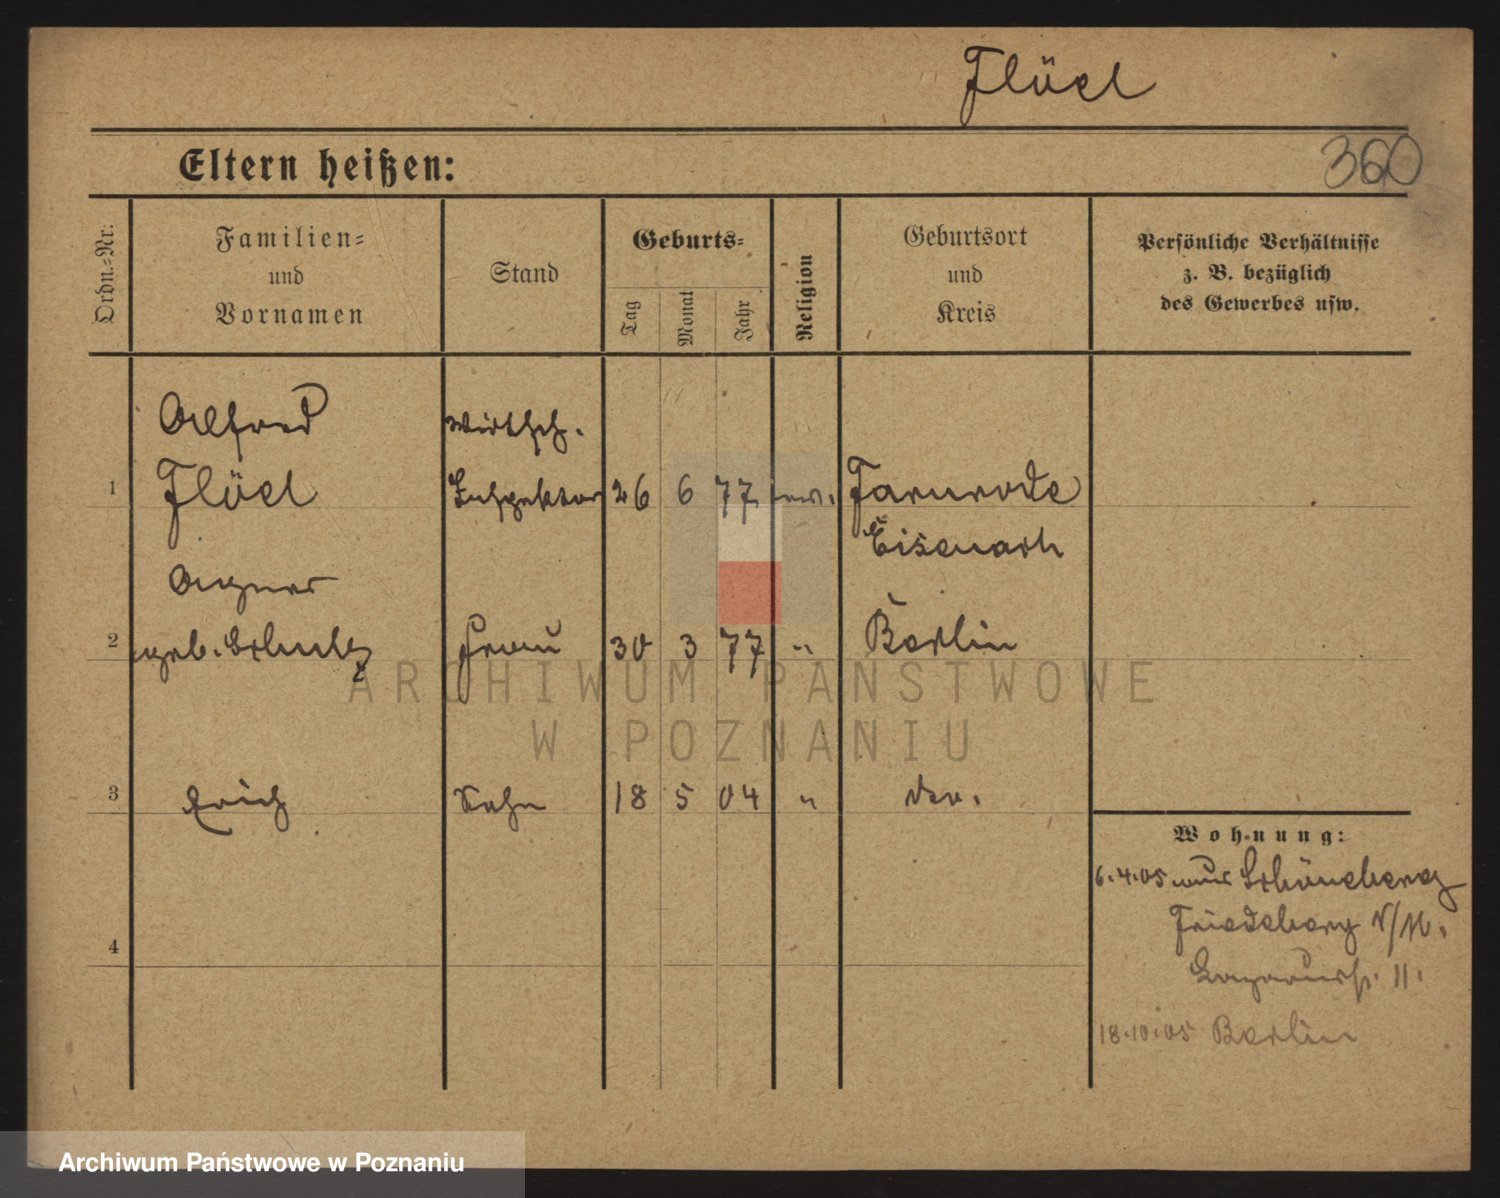 Flöel
Eltern heißen:
360
Ordn.-Nr.
Familien-
und
Vornamen
Stand
Geburts-
Tag
Monat
Jahr
Religion
Geburtsort
und
Kreis
Persönliche Verhältnisse
z. B. bezüglich
des Gewerbes usw.
Alfred
Wirthsch.
1 Flöel Inspektor 26 6 77 ev. Farnrode
Eisenach
Agnes
2 geb. Schulz Frau 30 3 77 " Berlin
ARCHIWUM PAŃSTWOWE
W POZNANIU
3 Erich Sohn 18 5 04 "
Wohnung:
6.4.05 aus Schöneberg
Friedeberg N/M.
11.
4
18.10.05 Berlin
Archiwum Państwowe w Poznaniu